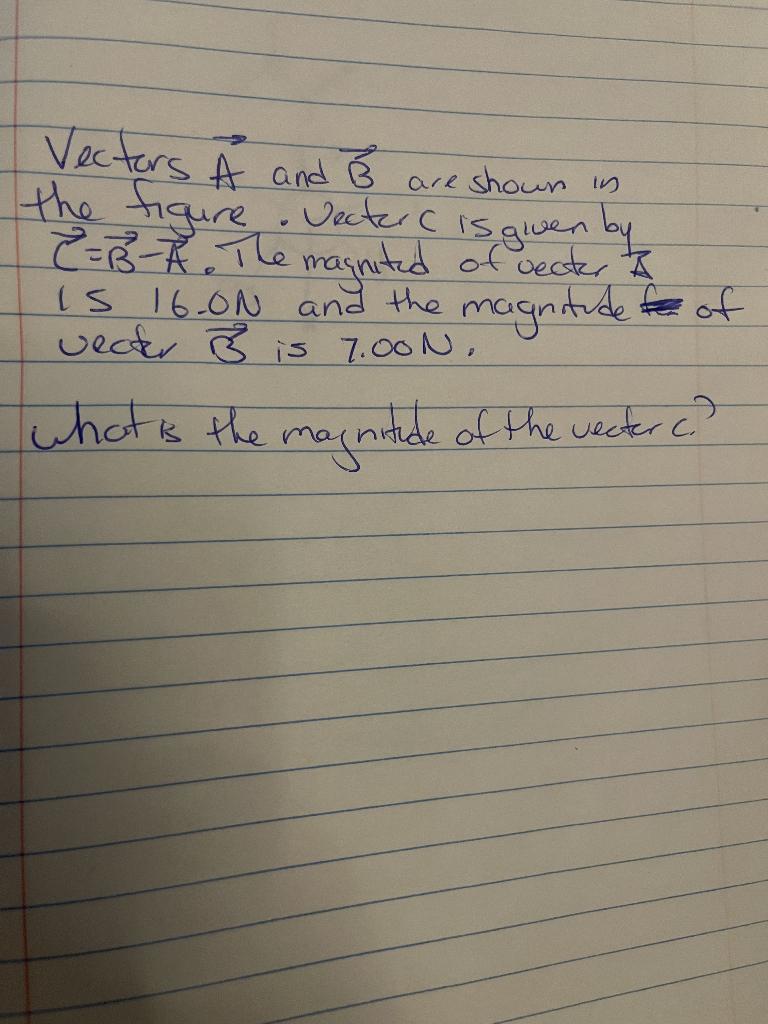 Vectors A⃗ and B⃗ are shown in
the figure. Vector C is given by
C⃗=B⃗-A⃗. The magnitud of vector A⃗
is 16.0N and the magnitude of
vector B⃗ is 7.00N.
what is the magnitude of the vector c?